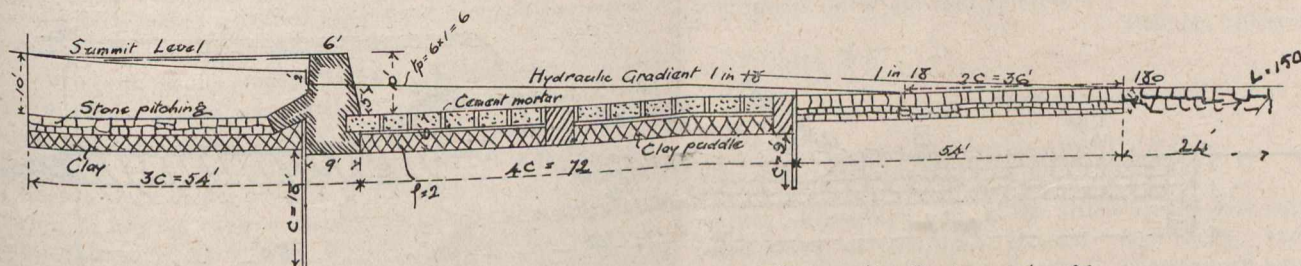 Summit Level
6'
tp = 6 x 1 = 6
10'
10'
2'
Hydraulic Gradient 1 in 18
1 in 18
2C = 36'
180
L = 150
Stone pitching
Cement mortar
Clay
Clay puddle
9'
3C = 54'
4C = 72
54'
24'
C = 18'
ρ = 2